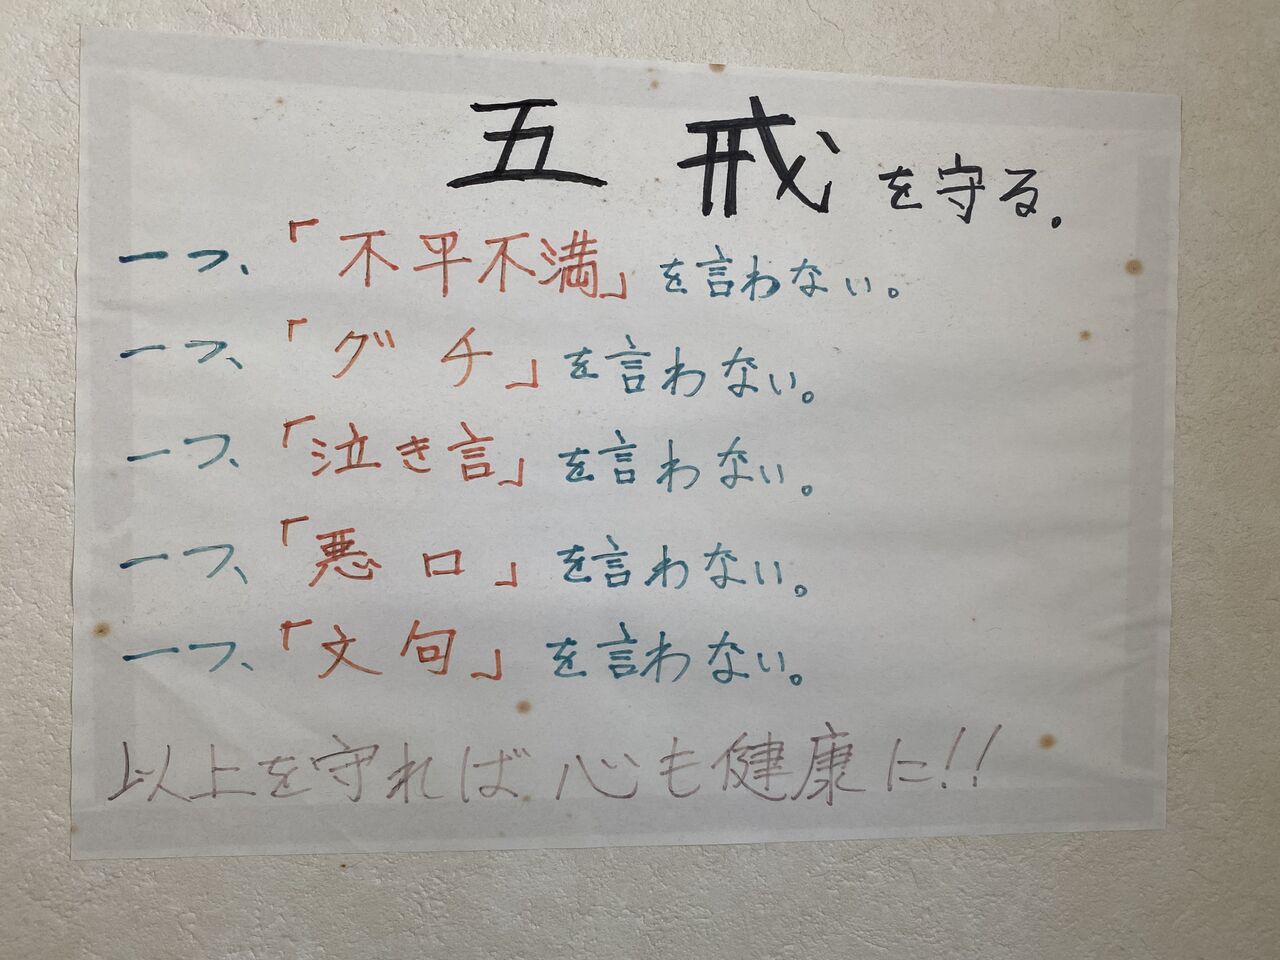 五戒を守る。
一つ、「不平不満」を言わない。
一つ、「グチ」を言わない。
一つ、「泣き言」を言わない。
一つ、「悪口」を言わない。
一つ、「文句」を言わない。
以上を守れば心も健康に!!